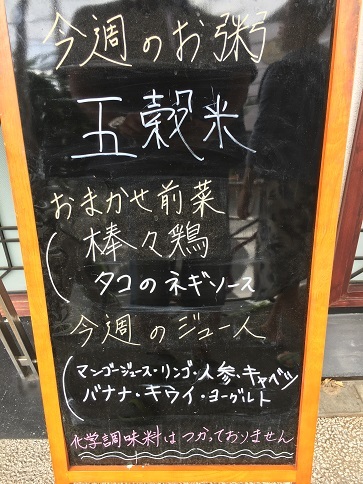 今週のお粥
五穀米
おまかせ前菜
棒々鶏
タコのネギソース
今週のジュース
マンゴージュース・リンゴ・人参・キャベツ
バナナ・キウイ・ヨーグルト
化学調味料はつかっておりません